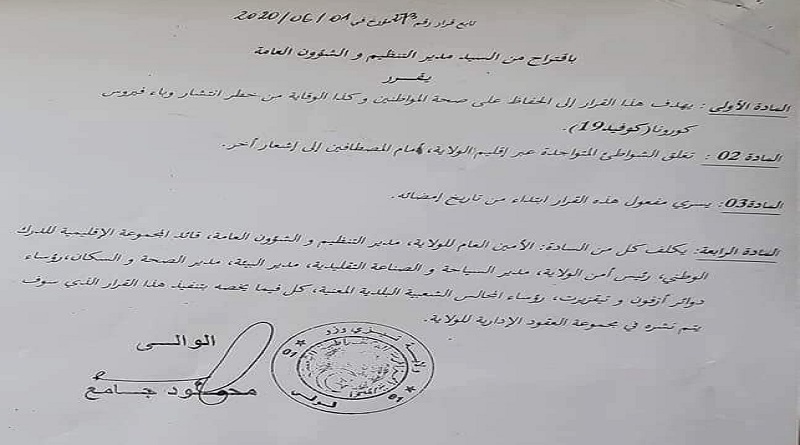 تابع قرار رقم 273 مؤرخ في 01/ 06/ 2020
باقتراح من السيد مدير التنظيم و الشؤون العامة
يقــرر
المادة الأولى : يهدف هذا القرار إلى الحفاظ على صحة المواطنين و كذا الوقاية من خطر انتشار وباء فيروس
كورونا(كوفيد19).
المادة 02 : تغلق الشواطئ المتواجدة عبر إقليم الولاية، أمام المصطافين إلى إشعار أخر.
المادة03: يسري مفعول هذه القرار ابتداء من تاريخ إمضائه.
المادة الرابعة: يكلف كل من السادة: الأمين العام للولاية، مدير التنظيم و الشؤون العامة، قائد المجموعة الإقليمية للدرك
الوطني، رئيس أمن الولاية، مدير السياحة و الصناعة التقليدية، مدير البيئة، مدير الصحة و السكان،رؤساء
دوائر أزفون و تيقزيرت، رؤساء المجالس الشعبية البلدية المعنية، كل فيما يخصه بتنفيذ هذا القرار الذي سوف
يتم نشره في مجموعة العقود الإدارية للولاية.
الوالــي
محمــود جـامع
ولاية تيزي وزو
01 * 01 *
الوالي